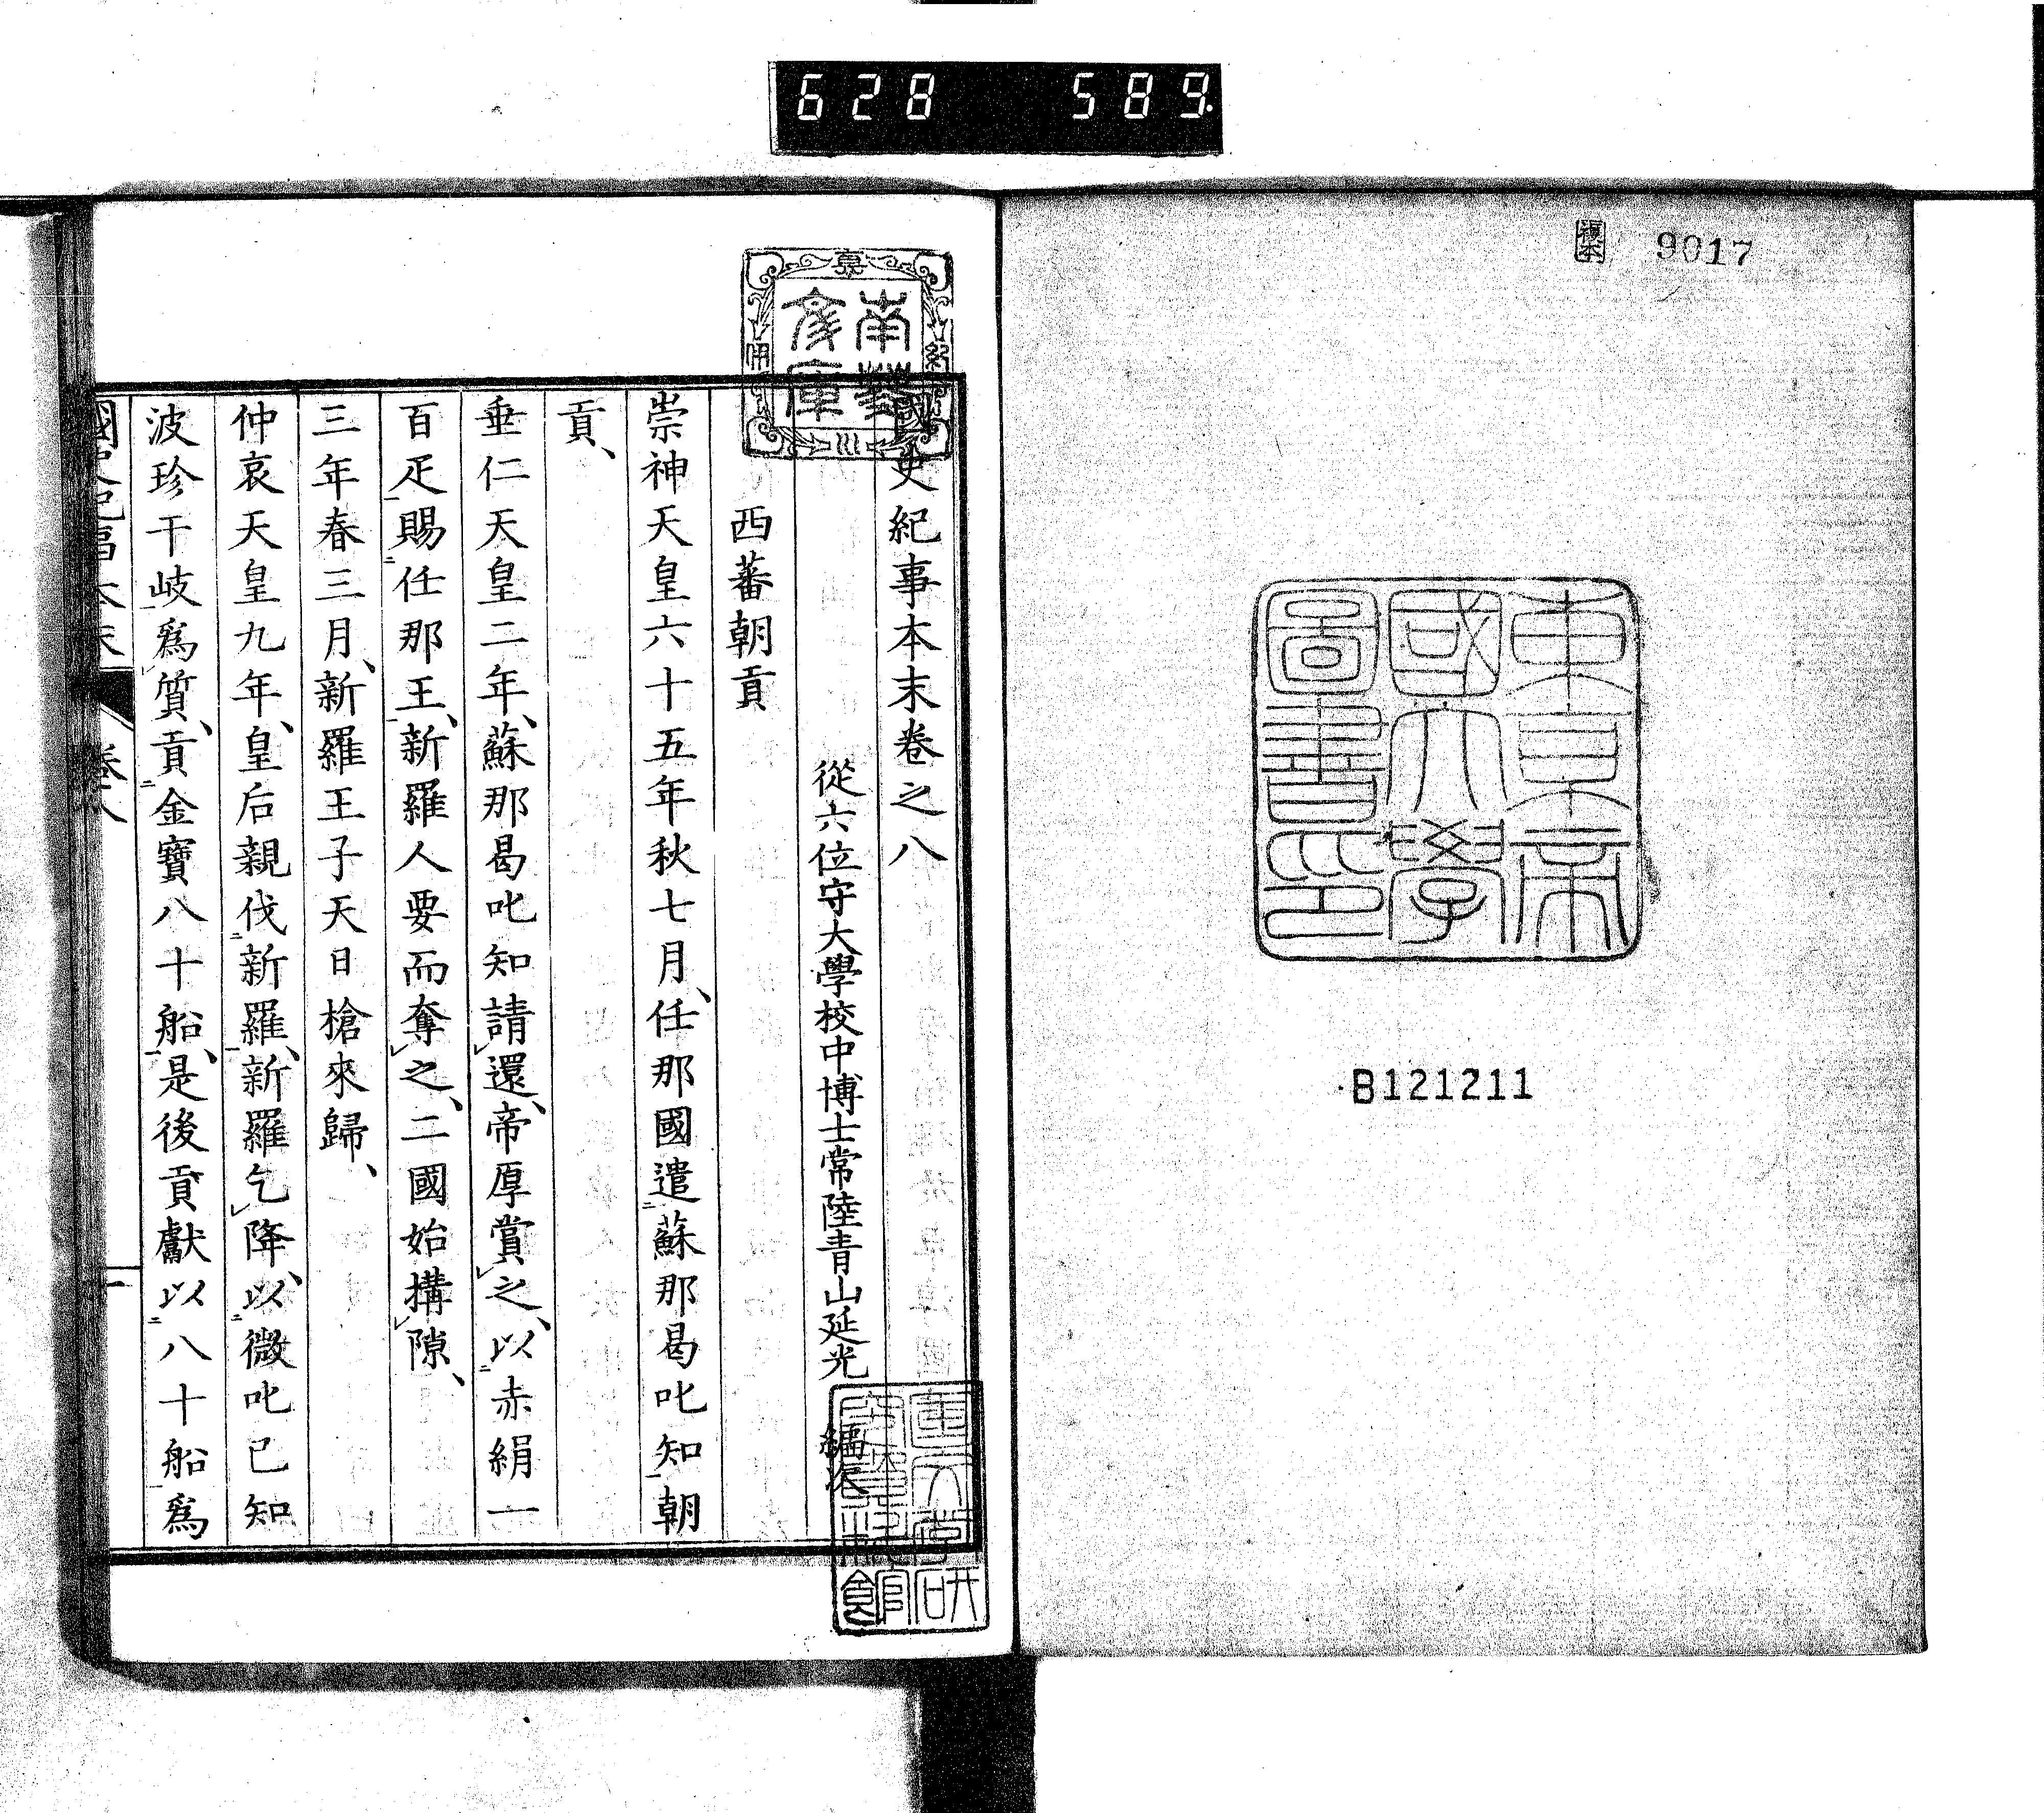 628 589.
複本 9017
東京帝
國大學
圖書印
B121211
南葵
文庫
國史紀事本末卷之八
從六位守大學校中博士常陸青山延光 編次
西蕃朝貢
崇神天皇六十五年秋七月、任那國遣二蘇那曷叱知一朝
貢、
垂仁天皇二年、蘇那曷叱知請レ還、帝厚賞レ之、以二赤絹一
百疋一賜二任那王一、新羅人要而奪レ之、二國始搆レ隙、
三年春三月、新羅王子天日槍來歸、
仲哀天皇九年、皇后親伐二新羅一、新羅乞レ降、以二微叱已知
波珍干岐一爲レ質、貢二金寶八十船一、是後貢獻以二八十船一爲
國史紀事本末 卷八 一